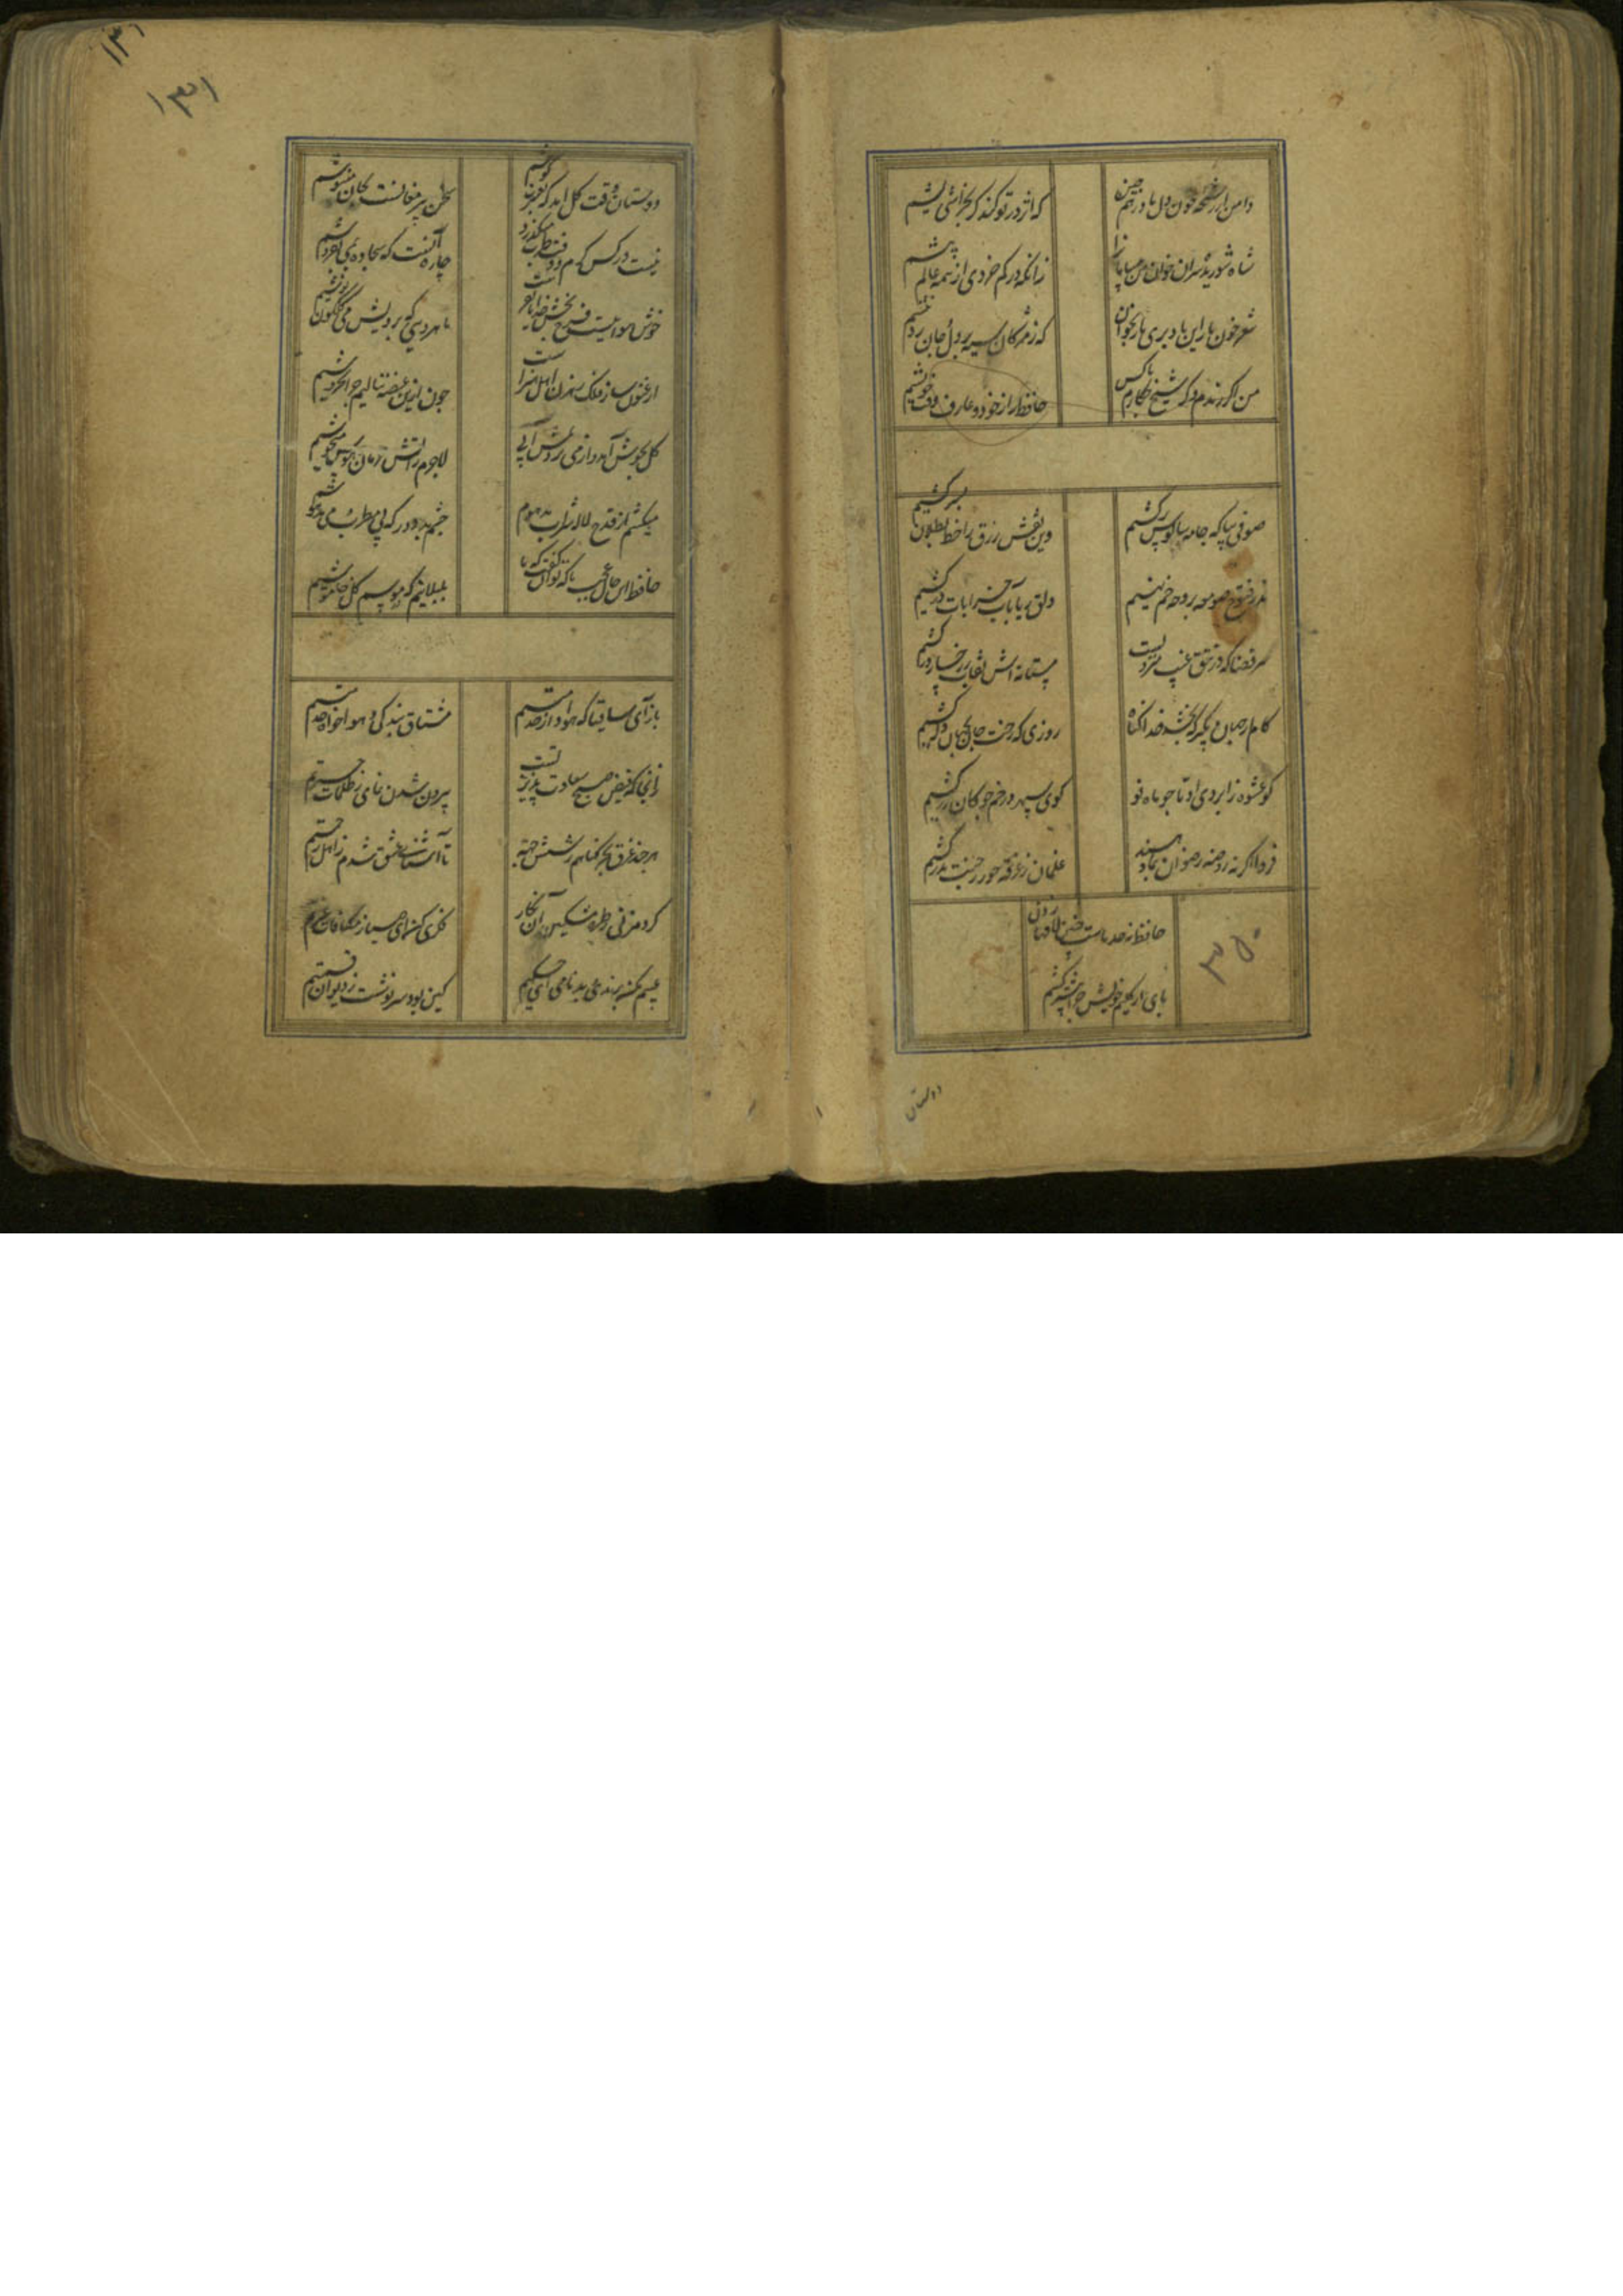 ۱۳۱
۱۳۱
دامن از رشحه خون دل ما درهم چین
که اثر در تو کند گر بخراشی ریشم
شاه شوریده سران خوان من بی سامان را
زانکه در کم خردی از همه عالم پیشم
شعر خون بار من باد بدان یار بخوان
که ز مژگان سیه بر دل و جان زد نیشم
من اگر رندم و گر شیخ چکارم با کس
حافظ راز خود و عارف وقت خویشم
صوفی بیا که جامه سالوس برکشیم
وین نقش زرق را خط بطلان بسر کشیم
نذر و فتوح صومعه در وجه می نهیم
دلق ریا بآب خرابات درکشیم
سر قضا که در تتق غیب منزویست
مستانه اش نقاب ز رخسار برکشیم
کام از جهان بگیر که بخشد خدا گناه
روزی که رخت جان بجهان دگر کشیم
کو عشوه ز ابروی او تا چو ماه نو
گوی سپهر در خم چوگان زر کشیم
فردا اگر نه روضه رضوان بما دهند
غلمان ز غرفه حور ز جنت بدر کشیم
حافظ نه حد ماست چنین لافها زدن
پای از گلیم خویش چرا بیشتر کشیم
۳۵۰
دوستان
دوستان وقت گل آمد که بعشرت کوشیم
سخن پیر مغانست بجان بنیوشیم
نیست در کس کرم و وقت طرب میگذرد
چاره آنست که سجاده بمی بفروشیم
خوش هواییست فرح بخش خدایا بفرست
ماهرویی که برویش می گلگون نوشیم
ارغنون ساز فلک رهزن اهل هنرست
چون ازین غصه ننالیم چرا نخروشیم
گل بجوش آمد و از می نزدیمش آبی
لاجرم ز آتش حرمان و هوس میجوشیم
میکشیم از قدح لاله شراب موهوم
چشم بد دور که بی مطرب و می مدهوشیم
حافظ این حال عجب با که توان گفت که ما
بلبلانیم که در موسم گل خاموشیم
بازآی ساقیا که هوادار خدمتم
مشتاق بندگی و هواخواه خدمتم
زانجا که فیض صبح سعادت پذیر تست
بیرون شدن نمای ز ظلمات حیرتم
هر چند غرق بحر گناهم ز شش جهت
تا آشنای عشق شدم ز اهل رحمتم
گردم زنی ز طره مشکین آن نگار
فکری کن ای صبا ز مکافات غیرتم
عیبم مکن برندی و بدنامی ای حکیم
کین بود سرنوشت ز دیوان قسمتم